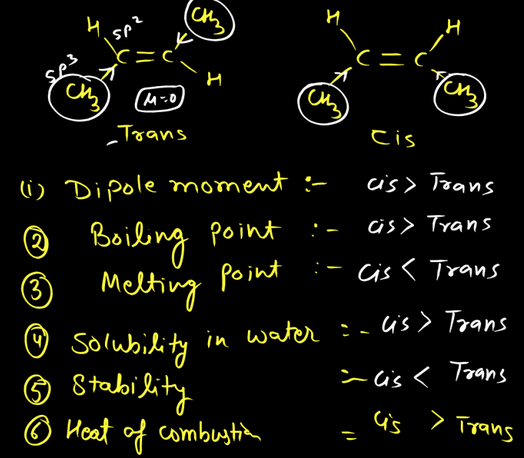 H sp² CH₃ H H
sp³ C = C C = C
CH₃ H CH₃ CH₃
μ=0
Trans Cis
(i) Dipole moment :- cis > Trans
② Boiling point :- cis > Trans
③ Melting point :- cis < Trans
④ Solubility in water =- cis > Trans
⑤ Stability =- cis < Trans
⑥ Heat of combustion = cis > Trans